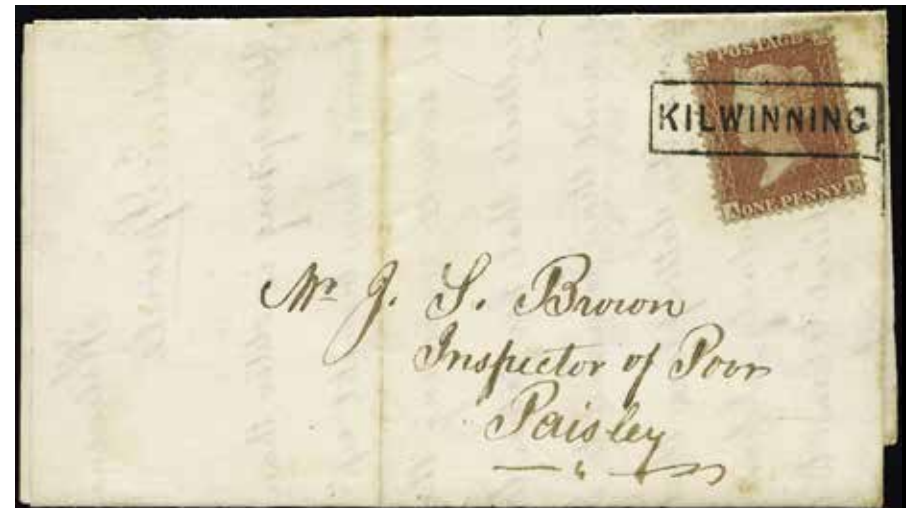 POSTAGE
KILWINNING
ONE PENNY
Mr J. S. Brown
Inspector of Poor
Paisley